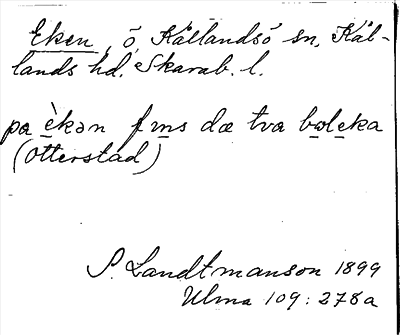 Eken, ö, Kållandsö sn, Kål-
lands hd. Skarab. l.
pa èkən fins dæ tva bɷleka
(Otterstad)
S. Landtmanson 1899
Ulma 109:278a